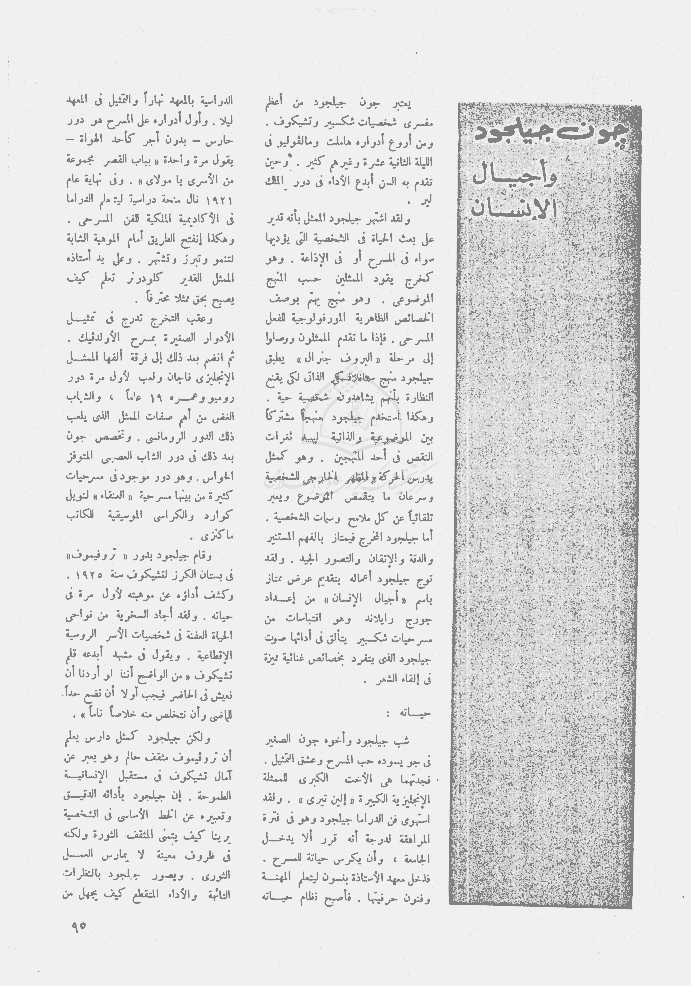 چون جيلجود
وأجيـــال
الإنســان
يعتبر جون جيلجود من أعظم
مفسرى شخصيات شكسبير وتشيكوف .
ومن أروع أدواره هاملت ومالڤوليو فى
الليلة الثانية عشرة وغيرهم كثير . وحين
تقدم به السن أبدع الأداء فى دور الملك
لير .
ولقد اشتهر جيلجود الممثل بأنه قدير
على بعث الحياة فى الشخصية التى يؤديها
سواء فى المسرح أو فى الإذاعة . وهو
كمخرج يقود الممثلين حسب المنهج
الموضوعى . وهو منهج يهتم بوصف
الخصائص الظاهرية المورفولوجية للفعل
المسرحى . فإذا ما تقدم الممثلون ووصلوا
إلى مرحلة « البروف جنرال » يطبق
جيلجود منهج الذاتى لكى يقنع
النظارة بأنهم يشاهدون شخصية حية .
وهكذا استخدم جيلجود منهجاً مشتركاً
بين الموضوعية والذاتية ليسد ثغرات
النقص فى أحد المنهجين . وهو كممثل
يدرس الحركة والمظهر الخارجى للشخصية
وسرعان ما يتقمص الموضوع ويعبر
تلقائياً عن كل ملامح وسمات الشخصية .
أما جيلجود المخرج فيمتاز بالفهم المستنير
والدقة والإتقان والتصور الجيد . ولقد
توج جيلجود أعماله بتقديم عرض ممتاز
باسم « أجيال الإنسان » من إعــداد
جورج رايلاند وهو اقتباسات من
مسرحيات شكسبير يتألق فى أدائها صوت
جيلجود الذى يتفرد بخصائص غنائية مميزة
فى إلقاء الشعر .
حيـــاته :
شب جيلجود وأخوه جون الصغير
فى جو يسوده حب المسرح وعشق التمثيل .
فجدتهما هى الأخت الكبرى للممثلة
الإنجليزية الكبيرة « إلين تيرى » . ولقد
استهوى فن الدراما جيلجود وهو فى فترة
المراهقة لدرجة أنه قرر ألا يدخــل
الجامعة ، وأن يكرس حياتة للمسرح .
فدخل معهد الأستاذة بنسون ليتعلم المهنــة
وفنون حرفيتها . فأصبح نظام حيــاته
الدراسية بالمعهد نهاراً والتمثيل فى المعهد
ليلا . وأول أدواره على المسرح هو دور
حارس – بدون أجر كأحد الهواة –
يقول مرة واحدة « بباب القصر مجموعة
من الأسرى يا مولاى » . وفى نهاية عام
١٩٢١ نال منحة دراسية ليتعلم الدراما
فى الأكاديمية الملكية للفن المسرحى .
وهكذا إنفتح الطريق أمام الموهبة الشابة
لتنمو وتبرز وتشتهر . وعلى يد أستاذه
الممثل القدير كلودرنز تعلم كيف
يصبح بحق ممثلا محترفاً .
وعقب التخرج تدرج فى تمثيــل
الأدوار الصغيرة بمسرح الأولدڤيك .
ثم انضم بعد ذلك إلى فرقة ألفها الممثــل
الإنجليزى فاجان ولعب لأول مرة دور
روميو وعمــره ١٩ عاماً ، والشباب
الغض من أهم صفات الممثل الذى يلعب
ذلك الدور الرومانسى . وتخصص جون
بعد ذلك فى دور الشاب العصبى المتوفز
الحواس . وهو دور موجود فى مسرحيات
كثيرة من بينها مسرحية « العنقاء » لنويل
كوارد والكراسى الموسيقية للكاتب
ماكنزى .
وقام جيلجود بدور « تروفيموف »
فى بستان الكرز لتشيكوف سنة ١٩٢٥ .
وكشف أداؤه عن موهبته لأول مرة فى
حياته . ولقد أجاد السخرية من نواحى
الحياة العفنة فى شخصيات الأسر الروسية
الإقطاعية . ويقول فى مشهد أبدعه قلم
تشيكوف « من الواضح أننا لو أردنا أن
نعيش فى الحاضر فيجب أولا أن نضع حداً
للماضى وأن نتخلص منه خلاصاً تاماً » .
ولكن جيلجود كممثل دارس يعلم
أن تروفيموف مثقف حالم وهو يعبر عن
آمال تشيكوف فى مستقبل الإنسانيــة
الطموحة . إن جيلجود بأدائه الدقيــق
وتعبيره عن الخط الأساسى فى الشخصية
يرينا كيف يتمنى المثقف الثورة ولكنه
فى ظروف معينة لا يمارس العمــل
الثورى . ويصور جيلجود بالنظرات
التائهة والأداء المتقطع كيف يجهل من
٩٥